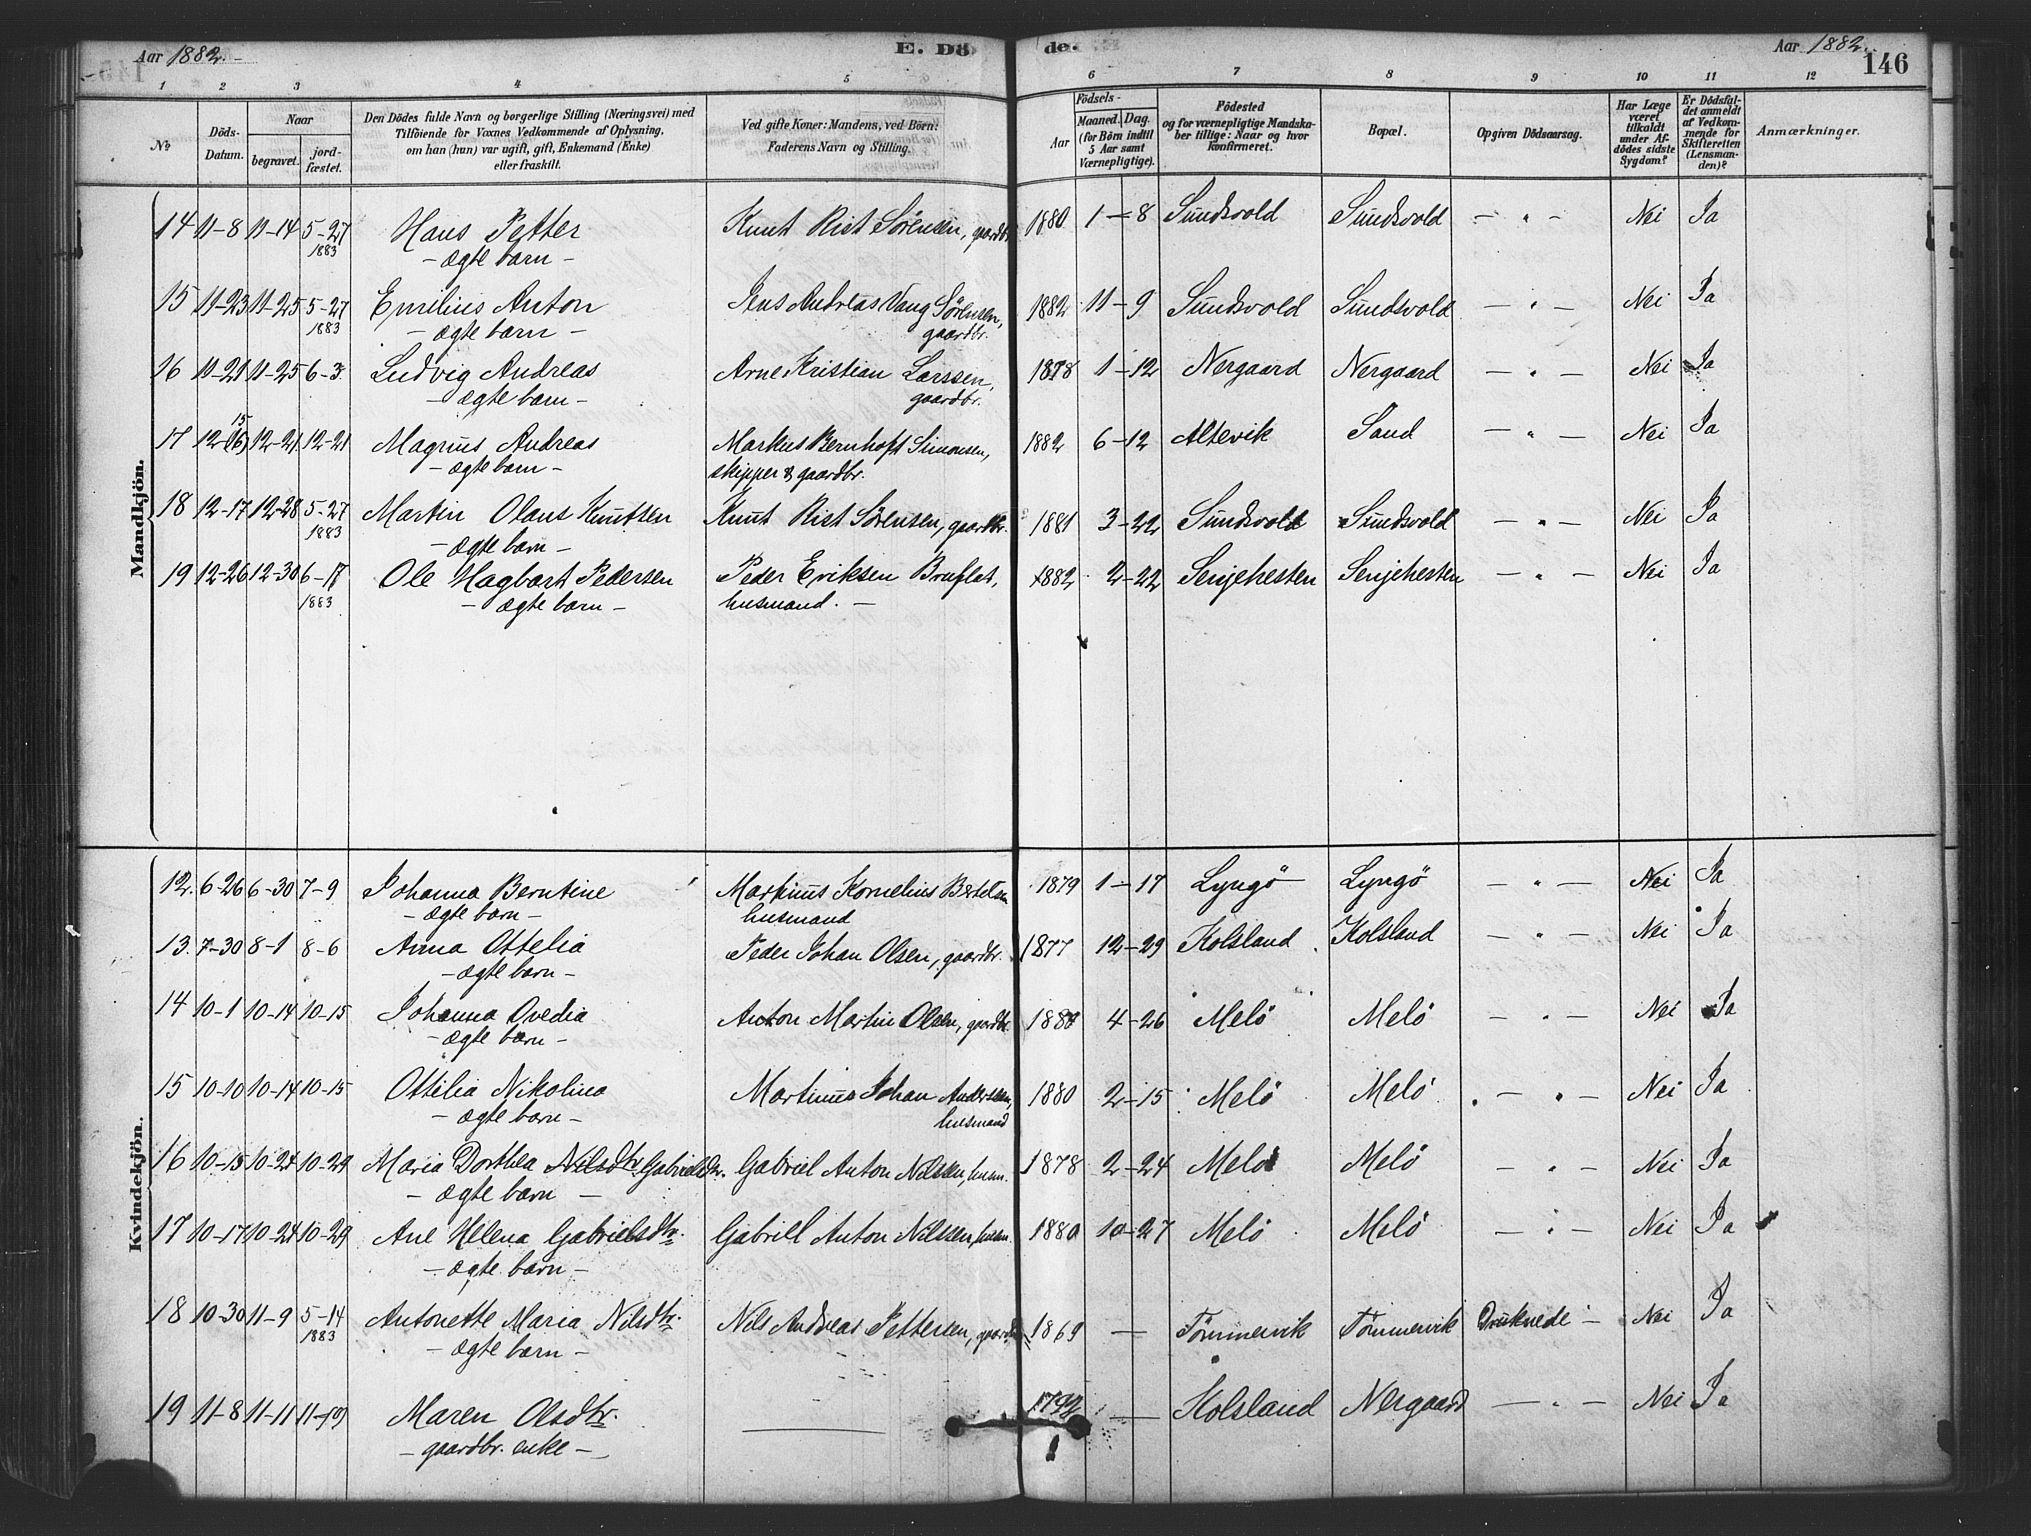 Aar 1882. E. Dö de. Aar 1882. 146
1 2 3 4 5 6 7 8 9 10 11 12
No Döds-Datum. Naar begravet. jordfæstet. Den Dödes fulde Navn og borgerlige Stilling (Næringsvei) med Tilföiende for Voxnes Vedkommende af Oplysning, om han (hun) var ugift, gift, Enkemand (Enke) eller fraskilt. Ved gifte Koner: Mandens, ved Börn: Faderens Navn og Stilling. Födsels- Aar Maaned. Dag. (for Börn indtil 5 Aar samt Værnepligtige). Födested og for værnepligtige Mandskaber tillige: Naar og hvor konfirmeret. Bopæl. Opgiven Dödsaarsag. Har Læge været tilkaldt under Afdödes sidste Sygdom? Er Dödsfaldet anmeldt af Vedkommende for Skifteretten (Lensmanden)? Anmærkninger.
Mandkjön.
14 11-8 11-14 5-27 Hans Petter Knut Rist Sörensen, gaardbr. 1880 1-8 Sundsvold Sundsvold - " - Nei Ja
1883 - ægte barn -
15 11-23 11-25 5-27 Emilius Anton Jens Andreas Vang Sörensen, 1882 11-9 Sundsvold Sundsvold - " - Nei Ja
1883 - ægte barn - gaardbr.
16 11-21 11-25 6-3 Ludvig Andreas Arne Kristian Larssen, 1878 1-12 Nergaard Nergaard - " - Nei Ja
- ægte barn - gaardbr.
15
17 12-(16) 12-21 12-21 Magnus Andreas Markus Bernhoft Simonsen, 1882 6-12 Altevik Sand - " - Nei Ja
- ægte barn - skipper & gaardbr.
18 12-17 12-28 5-27 Martin Olaus Knutsen Knut Rist Sörensen, gaardbr. 1881 3-22 Sundsvold Sundsvold - " - Nei Ja
1883 - ægte barn -
19 12-26 12-30 6-17 Ole Hagbart Pedersen Peder Eriksen Bruflat, 1882 2-22 Senjehesten Senjehesten - " - Nei Ja
1883 - ægte barn - husmand. -
Kvindekjön.
12. 6-26 6-30 7-9 Johanna Berntine Martinus Kornelius Bertelsen 1879 1-17 Lyngö Lyngö - " - Nei Ja
- ægte barn - husmand
13. 7-30 8-1 8-6 Anna Ottelia Peder Johan Olsen, gaardbr. 1877 12-29 Kolsland Kolsland - " - Nei Ja
- ægte barn -
14 10-1 10-14 10-15 Johanna Ovedia Anton Martin Olsen, gaardbr. 4-26 Melö Melö - " - Nei Ja
- ægte barn -
15 10-10 10-14 10-15 Ottilia Nikolina Martinus Johan Anderssen, 1880 2-15 Melö Melö - " - Nei Ja
- ægte barn - husmand
16 10-15 10-24 10-29 Maria Dorthea Nilsdtr. Gabrielsdtr. Gabriel Anton Nilssen, husm. 1878 2-24 Melö Melö - " - Nei Ja
- ægte barn -
17 10-17 10-24 10-29 Ane Helena Gabrielsdtr. Gabriell Anton Nilssen, husm. 1880 10-27 Melö Melö - " - Nei Ja
- ægte barn -
18 10-30 11-9 5-14 Antonette Maria Nilsdtr. Nils Andreas Pettersen, gaardbr. 1869 - Tömmervik Tömmervik Druknede - Nei Ja
1883 - ægte barn -
19 11-8 11-11 11-19 Maren Olsdtr. - - Holsland Nergaard - " - Nei Ja
- gaardbr. enke -